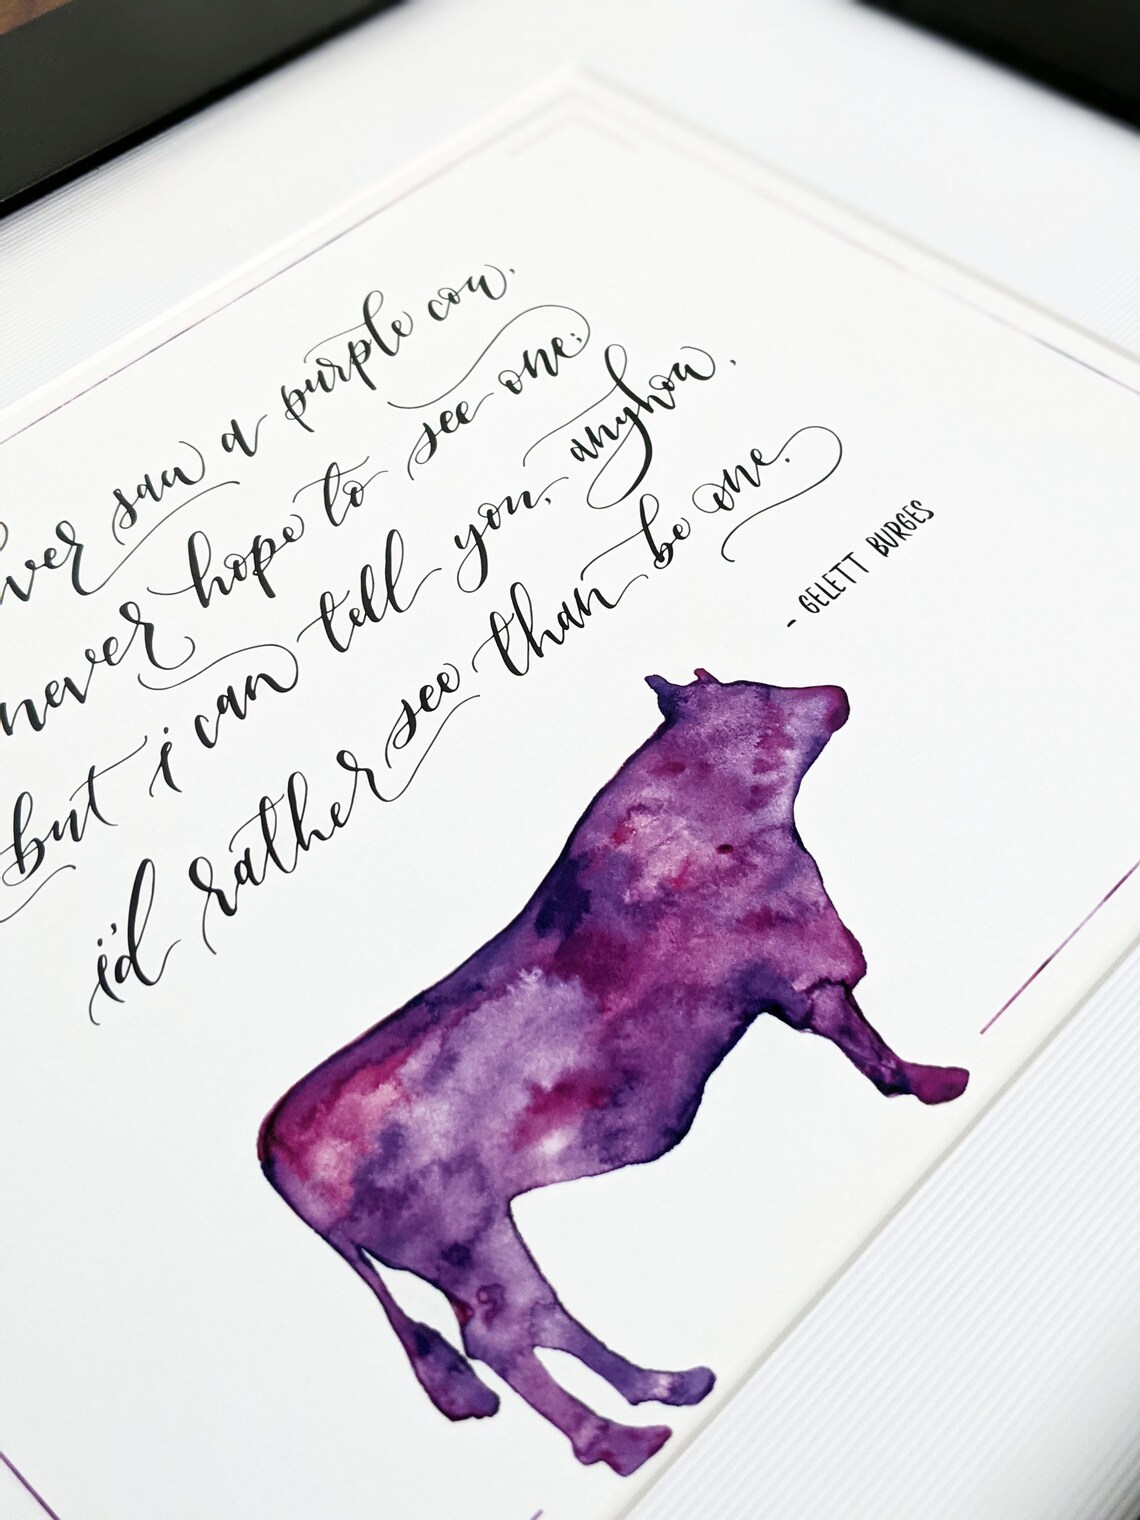 saw a purple cow.
never hope to see one;
but i can tell you, anyhow.
i'd rather see than be one.
- GELETT BURGES